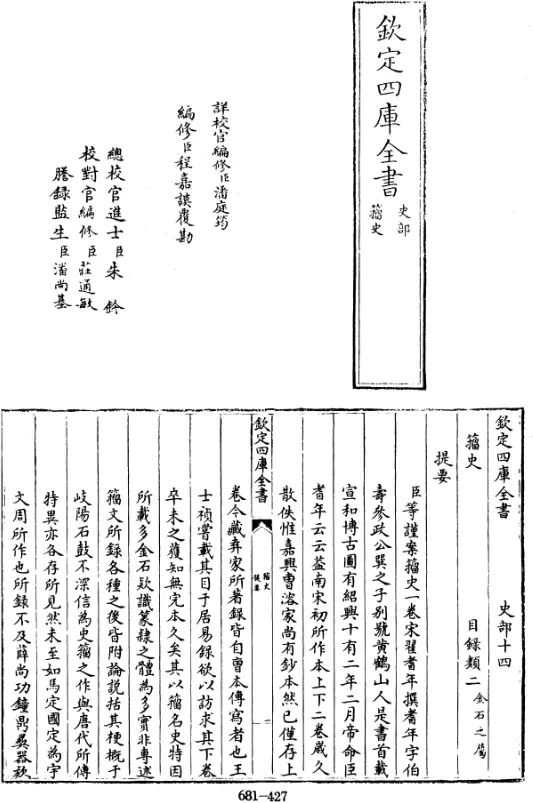 欽定四庫全書
史部
籀史
詳校官編修臣潘庭筠
編修臣程嘉謨覆勘
總校官進士臣朱鈐
校對官編修臣莊通敏
謄錄監生臣潘尚基
欽定四庫全書 史部十四
籀史 目錄類二 金石之屬
提要
臣等謹案籀史一卷宋翟耆年撰耆年字伯
壽參政公巽之子别號黄鶴山人是書首載
宣和博古圖有紹興十有二年二月帝命臣
耆年云云葢南宋初所作本上下二卷歲久
散佚惟嘉興曹溶家尚有鈔本然已僅存上
欽定四庫全書 籀史 提要 一
卷今藏弆家所著録皆自曹本傳寫者也王
士禎嘗載其目于居易録欲以訪求其下卷
卒未之獲知無完本久矣其以籀名史特因
所載多金石欵識篆隸之體為多實非專述
籀文所録各種之後皆附論説括其梗概于
岐陽石鼓不深信為史籀之作與唐代所傳
特異亦各存所見然未至如馬定國定為宇
文周所作也所録不及薛尚功鐘鼎彞器欵
681-427